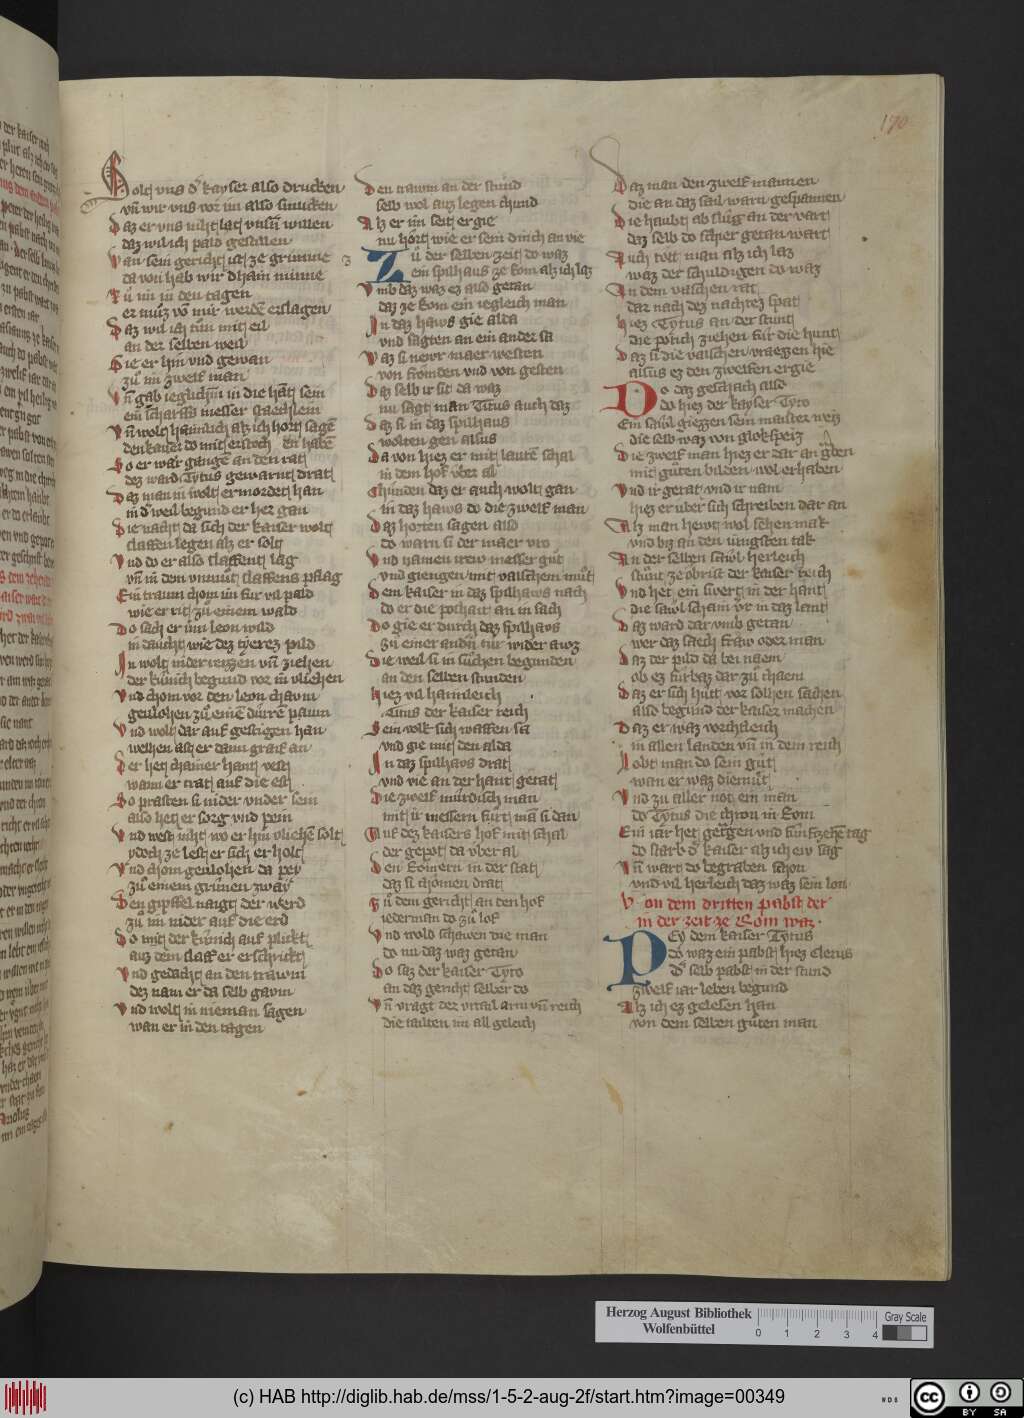 170
Solt vns der kayser also drucken
vñ wir vns vor im also smucken
Daz er vns nicht lat vnsñ willen
daz wil ich pald gestillen
Wan sein gericht ist ze grimme
da von hab wir dhain minne
Zu im in den tagen
er muz võ mir werdẽ erslagen
Daz wil ich tun mit eil
an der selben weil
Die er hin vnd gewan
zů im zwelf man
Vñ gab ieglichm in die hãt sein
ein scharffs messer staechlein
Vñ wolt haimlich alz ich hort sagẽ
den kaiser do mit erstochen habẽ
Do er waz gangẽ an den rat
dez ward Tytus gewarnt drat
Daz man in wolt ermordet han
in der weil begund er her gan
Die nacht da sich der kaiser wolt
slaffen legen alz er solt
Vnd do er also slaffent lag
vñ in dem vnmůt slaffens pflag
Ein traum chom im fur vil pald
wie er rit zů einem wald
Do sach er ein leon wild
in daucht wie dez tyerez pild
In wolt nider reizzen vñ ziehen
der kůnich begund vor im vliehen
Vnd chom vor den leon chaum
geulohen zů einẽ durrẽ paum
Vnd wolt dar auf gestigen han
welhen ast er dann graif an
Der het chainer hant vest
wann er trat auf die est
So prasten si nider vnder sein
also het er sorg vnd pein
Vnd west nicht wo er hin vliehẽ solt
ydoch ze lest er sich erholt
Vnd chom geulohen da pey
zů einem grůnen zway
Den gipffel naigt der werd
zů im nider auf die erd
Do mit der kůnich auf plickt
auz dem slaff er erschrickt
Vnd gedacht an den trawm
dez nam er da selb gaum
Vnd wolt in nieman sagen
wan er in den tagen
Den traum an der stund
selb wol auz legen chund
Alz er im seit ergie
nu hort wie er sein dinch an vie
Zů der selben zeit do waz
ein spilhaus ze Rom alz ich laz
Vmb daz waz ez also getan
daz ze Rom ein iegleich man
In daz haws gie alda
vnd sagten an ein ander sa
Waz si newr maer westen
von fromden vnd von gesten
Daz selb ir sit da waz
nu sagt man Titus auch daz
Daz si in daz spilhaus
wolten gen alsus
Da von hiez er mit lautẽ schal
in dem hof vber al
Chunden daz er auch wolt gan
in daz haws do die zwelf man
Daz horten sagen also
do warn si der maer vro
Vnd namen irew messer gůt
vnd giengen mit valschem můt
Dem kaiser in daz spilhaws nach
do er die pothait an in sach
Do gie er durch daz spilhavs
zu einer andñ tur wider awz
Die weil si in sůchen begunden
an den selben stunden
Hiez vil haimleich
Titus der kaiser reich
Sein volk sich waffen sa
vnd gie mit den alda
In daz spilhavs drat
vnd vie an der hant getat
Die zwelf murdisch man
mit ir messern furt mã si dan
Auf dez kaisers hof mit schal
der gepot da vber al
Den Romern in der stat
daz si chomen drat
Zů dem gericht an den hof
iederman do zů lof
Vnd wold schawen die man
do nu daz waz getan
Do saz der kaiser Tyto
an daz gericht selber do
Vñ vragt der vrtail arm vñ reich
die tailten im all geleich
Daz man den zwelf mannen
die an daz sail warn gespannen
Die haubt ab slug an der vart
daz selb do schier getan wart
Auch tott man alz ich laz
waz der schuldigen do waz
An dem valschen rat
dar nach dez nachtez spat
Hiez Tytus an der stunt
die potich ziehen fur die hunt
Daz si die valschen vraezzen hie
alsus ez den zwelfen ergie
Do daz geschach also
do hiez der kayser Tyto
Ein sawl giezzen sein maister weis
die selb waz von glokspeiz
Die zwelf man hiez er dar an gbẽn
mit gůten bilden wol erhaben
Vnd ir getat vnd ir nam
hiez er vber sich schreiben dar an
Alz man hewt wol sehen mak
vnd biz an den iungsten tak
An der selben sawl herleich
stůnt ze obrist der kaiser reich
Vnd het ein swert in der hant
die sawl schain vir in daz lant
Daz ward dar vmb getan
wer daz saech fraw oder man
Daz der pild da bei naem
ob ez furbaz dar zů chaem
Daz er sich hůtt vor solhen sachen
also begund der kaiser machen
Daz er waz vorchtleich
in allen landen vñ in dem reich
Lobt man do sein gůt
wan er waz diemůt
Vnd zu aller not ein man
do Tytus die chron in Rom
Ein iar het getragen vnd funfzehẽ tag
do starb der kaiser alz ich ew sag
Vñ wart do begraben schon
vnd vil herleich daz waz sein lon
Von dem dritten pabst der
in der zeit ze Rom waz.
Pey dem kaiser Tytus
do waz ein pabst hiez Cletus
der selb pabst in der stund
zwelf iar leben begund
Alz ich ez gelesen han
von dem selben gůten man
Herzog August Bibliothek
Wolfenbüttel
0 1 2 3 4
Gray Scale
(c) HAB http://diglib.hab.de/mss/1-5-2-aug-2f/start.htm?image=00349
cc BY SA